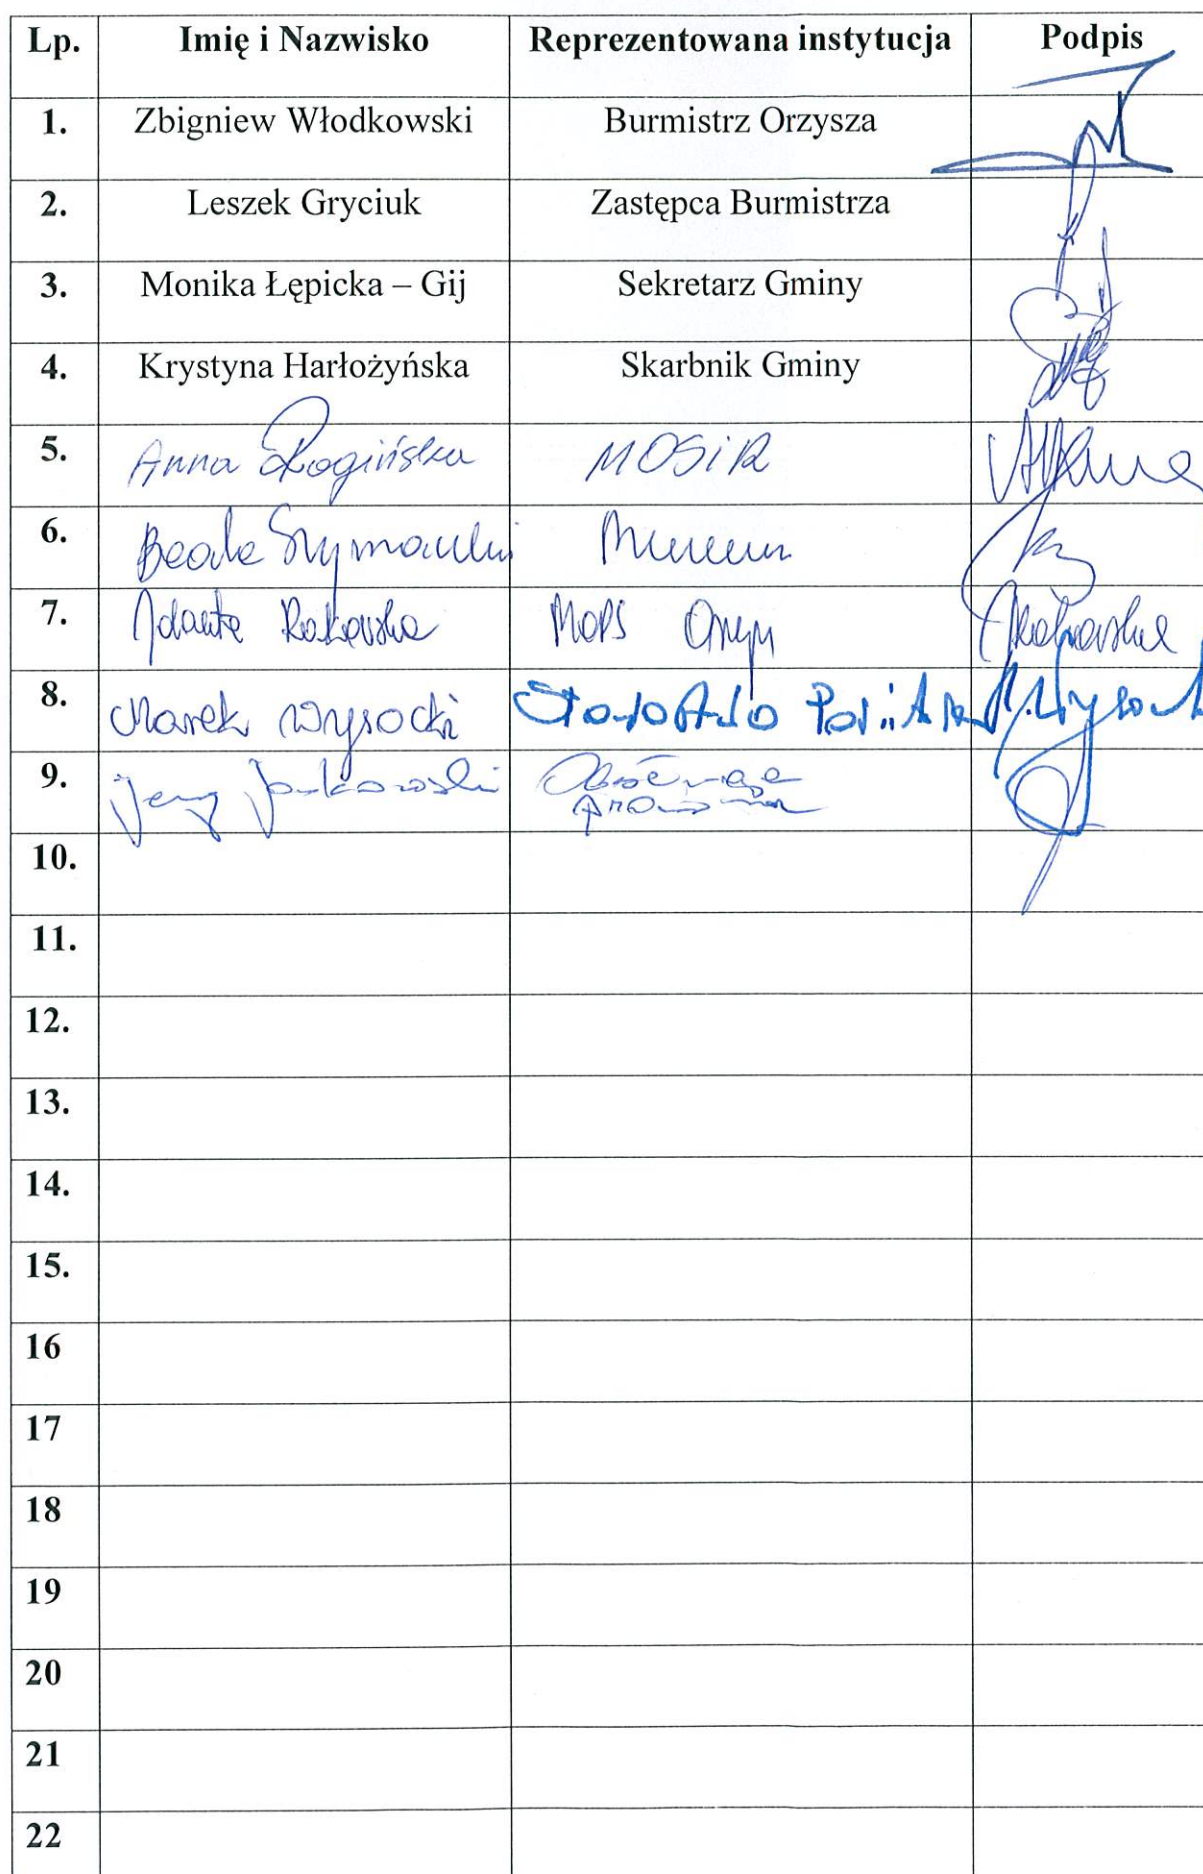 Lp. Imię i Nazwisko Reprezentowana instytucja Podpis
1. Zbigniew Włodkowski Burmistrz Orzysza
2. Leszek Gryciuk Zastępca Burmistrza
3. Monika Łępicka – Gij Sekretarz Gminy
4. Krystyna Harłożyńska Skarbnik Gminy
5. Anna Rogińska MOSiR
6. Beata Szymańska Muzeum
7. Jolanta Rakowska MOPS Orzysz
8. Marek Wysocki Starostwo M. Wysocki
9. Jerzy Jankowski
10.
11.
12.
13.
14.
15.
16
17
18
19
20
21
22